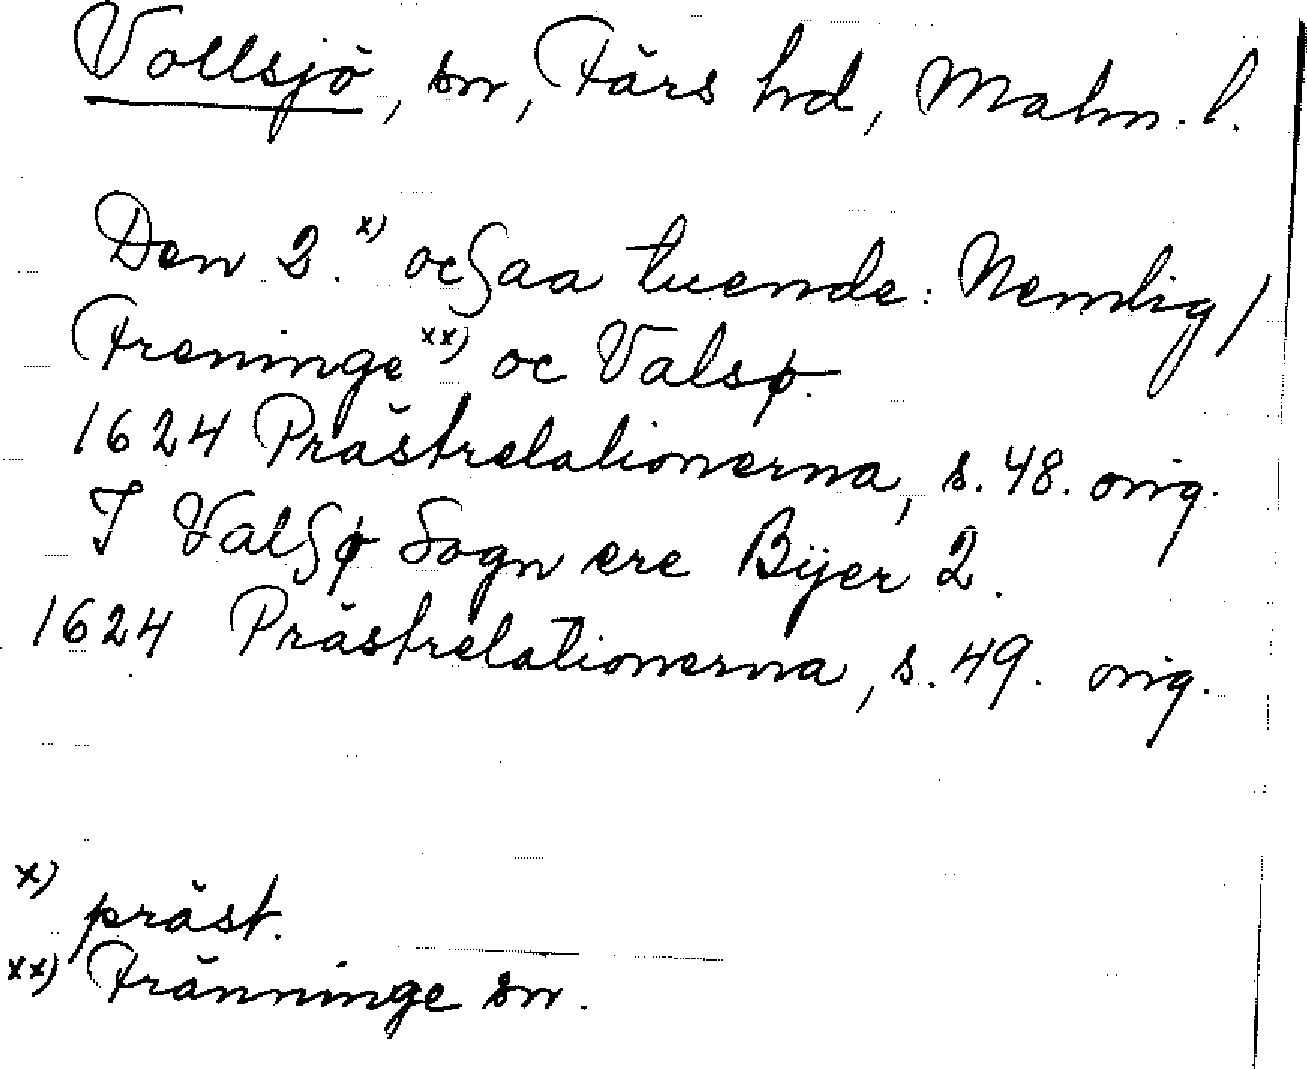 Vollsjö, sn, Färs hd, Malm. l.
Den 2.x) ocsaa tuende: Nemlig/
Freninge xx) oc Valsø.
1624 Prästrelationerna, s. 48. orig.
I Valsø Sogn ere Bÿer 2.
1624 Prästrelationerna, s. 49. orig.
x) präst.
xx) Fränninge sn.